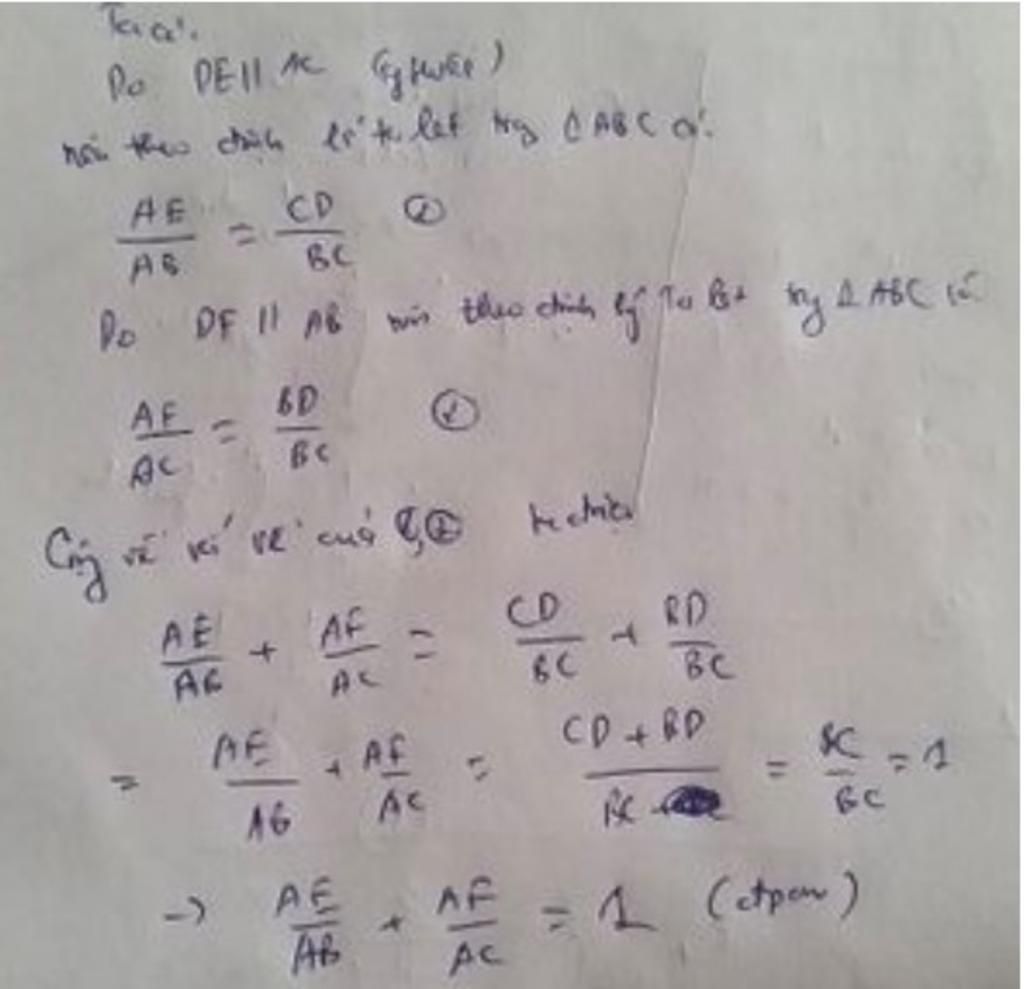 Ta có:
Do DE // AC (gt)
nên theo định lí ta let trg Δ ABC có:
AE/AB = CD/BC ①
Do DF // AB nên theo định lý Ta let trg Δ ABC có
AF/AC = BD/BC ②
Cộng vế với vế của ①, ② ta được
AE/AB + AF/AC = CD/BC + BD/BC
= AE/AB + AF/AC = CD + BD/BC = BC/BC = 1
-> AE/AB + AF/AC = 1 (đpcm)